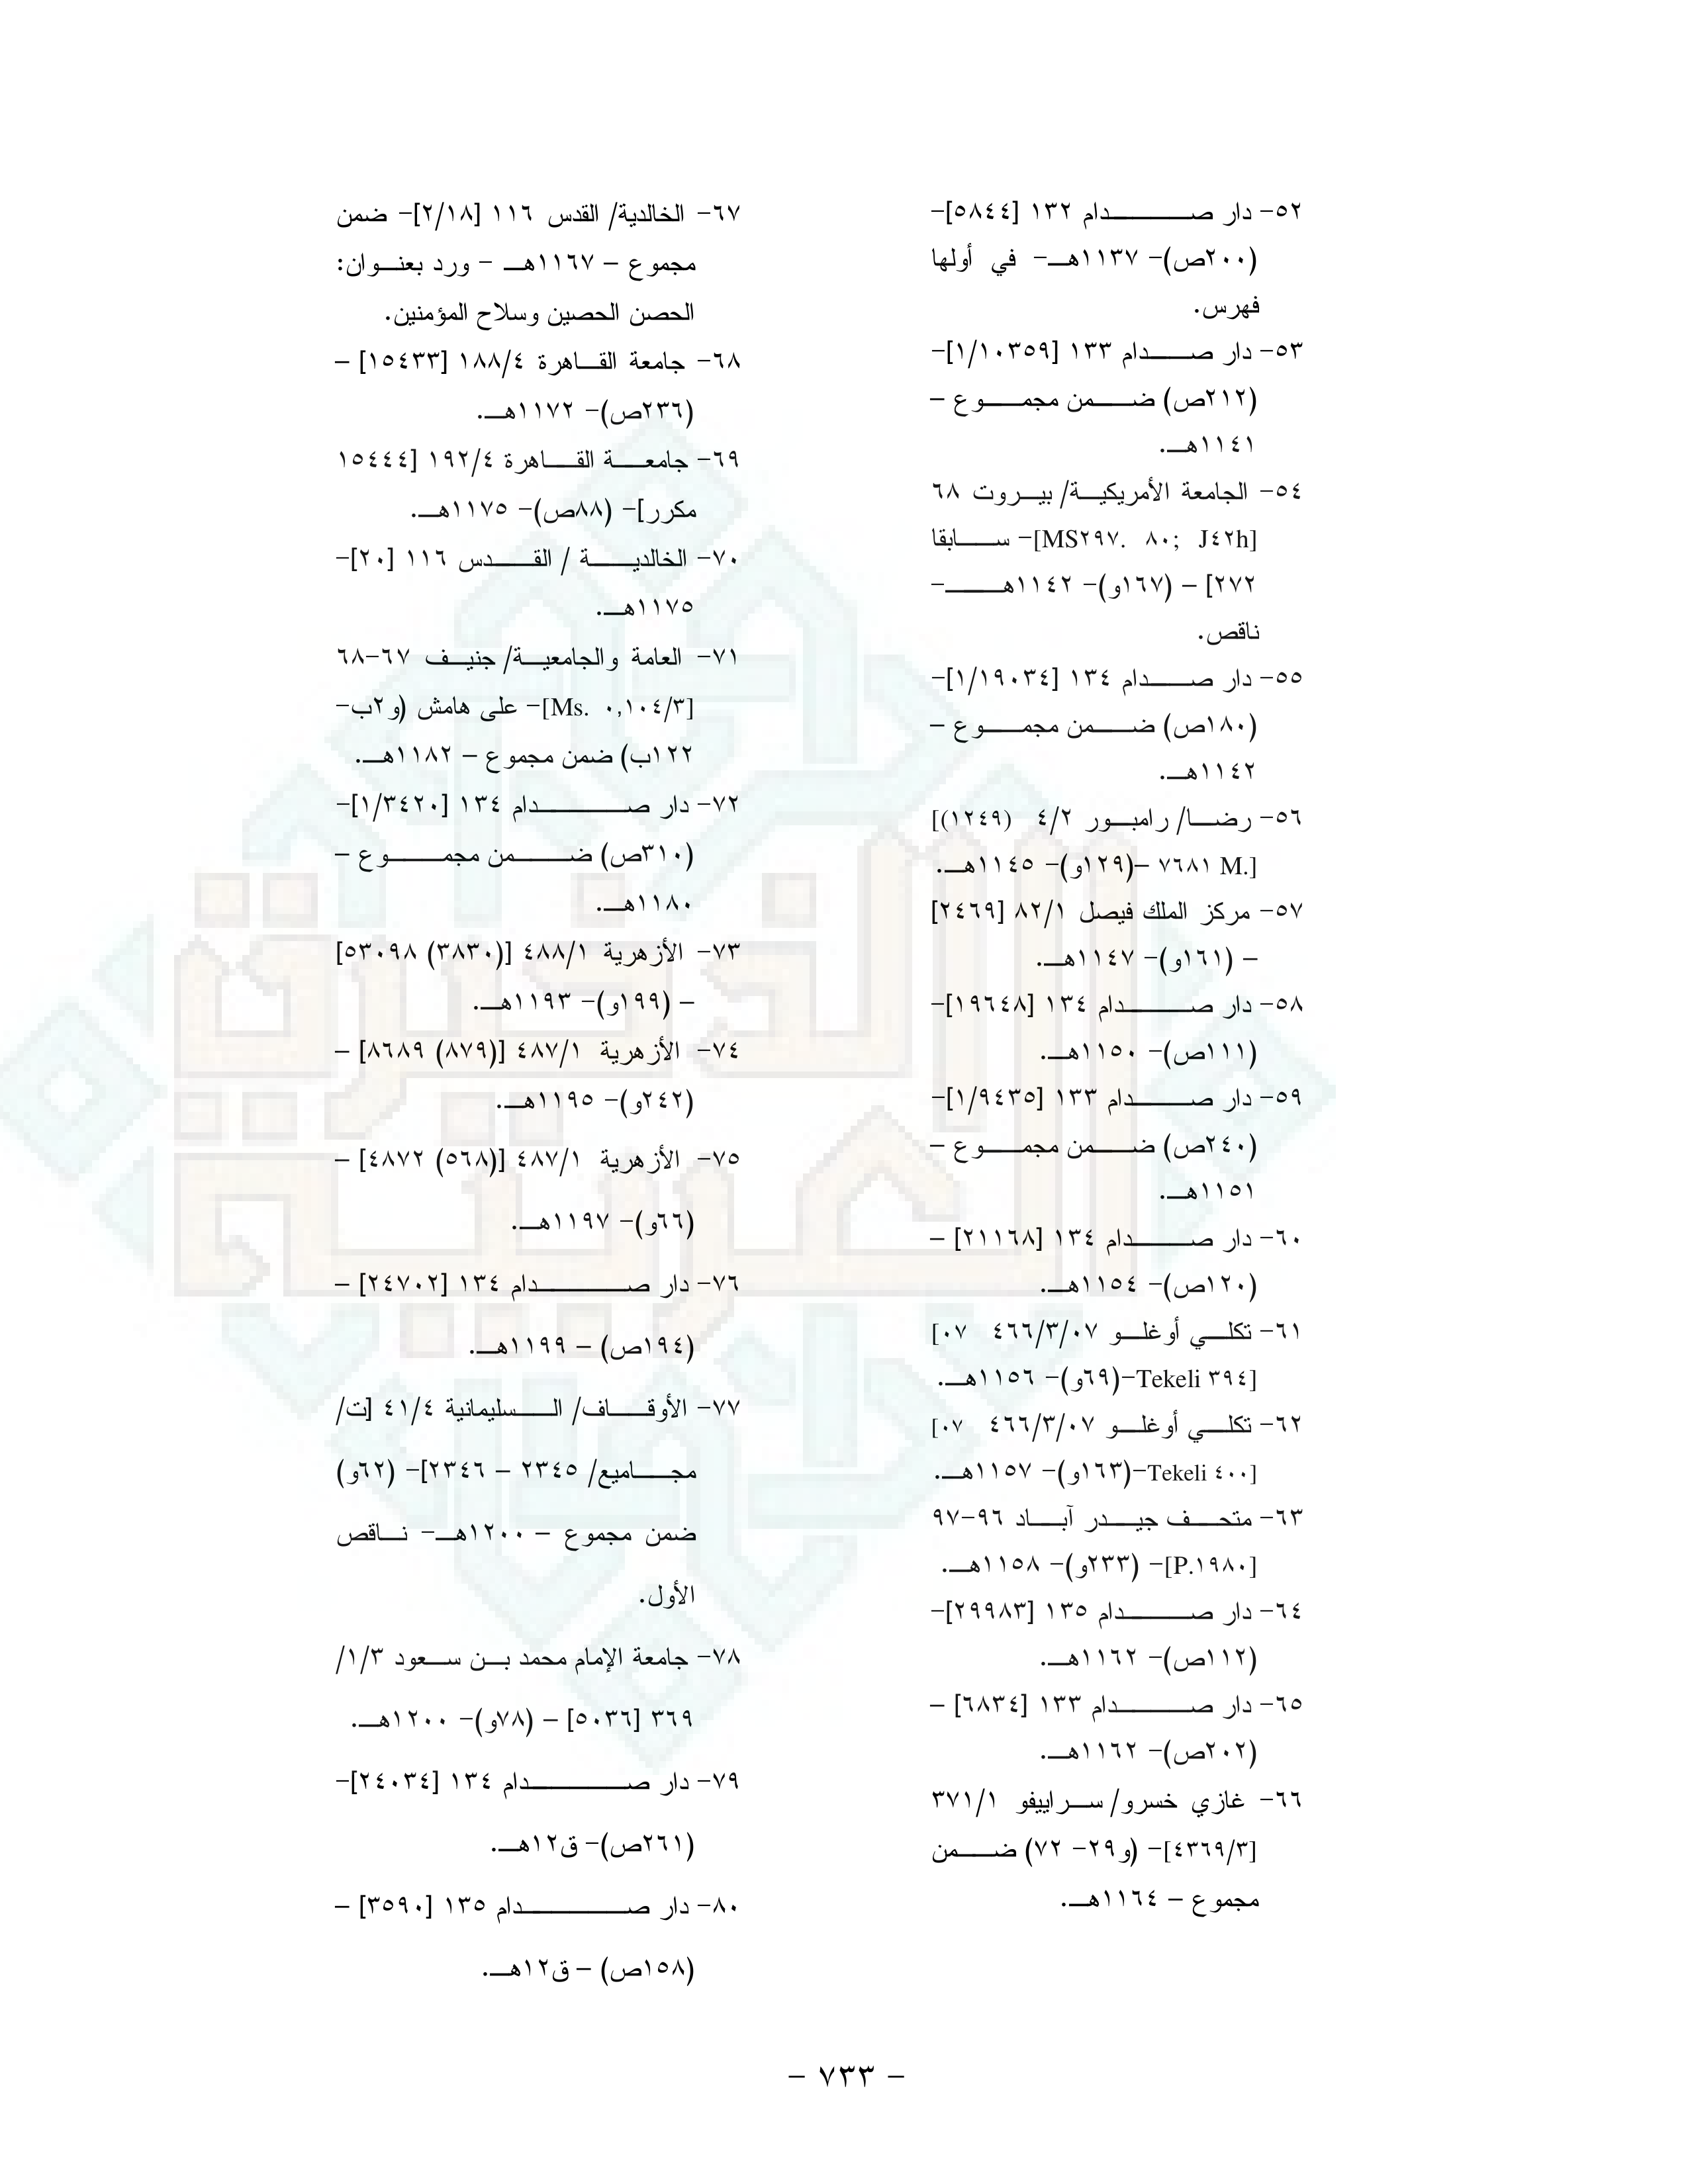 ٥٢- دار صدام ١٣٢ [٥٨٤٤]-
(٢٠٠ص)- ١١٣٧هـ- في أولها
فهرس.
٥٣- دار صدام ١٣٣ [١/١٠٣٥٩]-
(٢١٢ص) ضمن مجموع –
١١٤١هـ.
٥٤- الجامعة الأمريكية/ بيروت ٦٨
[MS٢٩٧. ٨٠; J٤٢h]- سابقا
٢٧٢] – (١٦٧و)- ١١٤٢هـ-
ناقص.
٥٥- دار صدام ١٣٤ [١/١٩٠٣٤]-
(١٨٠ص) ضمن مجموع –
١١٤٢هـ.
٥٦- رضا/ رامبور ٤/٢ (١٢٤٩)]
[.M ٧٦٨١ –(١٢٩و)- ١١٤٥هـ.
٥٧- مركز الملك فيصل ٨٢/١ [٢٤٦٩]
– (١٦١و)- ١١٤٧هـ.
٥٨- دار صدام ١٣٤ [١٩٦٤٨]-
(١١١ص)- ١١٥٠هـ.
٥٩- دار صدام ١٣٣ [١/٩٤٣٥]-
(٢٤٠ص) ضمن مجموع –
١١٥١هـ.
٦٠- دار صدام ١٣٤ [٢١١٦٨] –
(١٢٠ص)- ١١٥٤هـ.
٦١- تكلي أوغلو ٤٦٦/٣/٠٧ ٠٧]
[٣٩٤ Tekeli–(٦٩و)- ١١٥٦هـ.
٦٢- تكلي أوغلو ٤٦٦/٣/٠٧ ٠٧]
[٤٠٠ Tekeli–(١٦٣و)- ١١٥٧هـ.
٦٣- متحف جيدر آباد ٩٦-٩٧
[P.١٩٨٠]- (٢٣٣و)- ١١٥٨هـ.
٦٤- دار صدام ١٣٥ [٢٩٩٨٣]-
(١١٢ص)- ١١٦٢هـ.
٦٥- دار صدام ١٣٣ [٦٨٣٤] –
(٢٠٢ص)- ١١٦٢هـ.
٦٦- غازي خسرو/ سراييفو ٣٧١/١
[٤٣٦٩/٣]- (و٢٩- ٧٢) ضمن
مجموع – ١١٦٤هـ.
٦٧- الخالدية/ القدس ١١٦ [٢/١٨]- ضمن
مجموع – ١١٦٧هـ - ورد بعنوان:
الحصن الحصين وسلاح المؤمنين.
٦٨- جامعة القاهرة ١٨٨/٤ [١٥٤٣٣] –
(٢٣٦ص)- ١١٧٢هـ.
٦٩- جامعة القاهرة ١٩٢/٤ [١٥٤٤٤
مكرر]- (٨٨ص)- ١١٧٥هـ.
٧٠- الخالدية / القدس ١١٦ [٢٠]-
١١٧٥هـ.
٧١- العامة والجامعية/ جنيف ٦٧-٦٨
[Ms. ٠,١٠٤/٣]- على هامش (و٢ب-
١٢٢ب) ضمن مجموع – ١١٨٢هـ.
٧٢- دار صدام ١٣٤ [١/٣٤٢٠]-
(٣١٠ص) ضمن مجموع –
١١٨٠هـ.
٧٣- الأزهرية ٤٨٨/١ [(٣٨٣٠) ٥٣٠٩٨]
– (١٩٩و)- ١١٩٣هـ.
٧٤- الأزهرية ٤٨٧/١ [(٨٧٩) ٨٦٨٩] –
(٢٤٢و)- ١١٩٥هـ.
٧٥- الأزهرية ٤٨٧/١ [(٥٦٨) ٤٨٧٢] –
(٦٦و)- ١١٩٧هـ.
٧٦- دار صدام ١٣٤ [٢٤٧٠٢] –
(١٩٤ص) – ١١٩٩هـ.
٧٧- الأوقاف/ السليمانية ٤١/٤ [ت/
مجاميع/ ٢٣٤٥ – ٢٣٤٦]- (٦٢و)
ضمن مجموع – ١٢٠٠هـ- ناقص
الأول.
٧٨- جامعة الإمام محمد بن سعود ١/٣/
٣٦٩ [٥٠٣٦] – (٧٨و)- ١٢٠٠هـ.
٧٩- دار صدام ١٣٤ [٢٤٠٣٤]-
(٢٦١ص)- ق١٢هـ.
٨٠- دار صدام ١٣٥ [٣٥٩٠] –
(١٥٨ص) – ق١٢هـ.
- ٧٣٣ -
الذخيرة
العربية